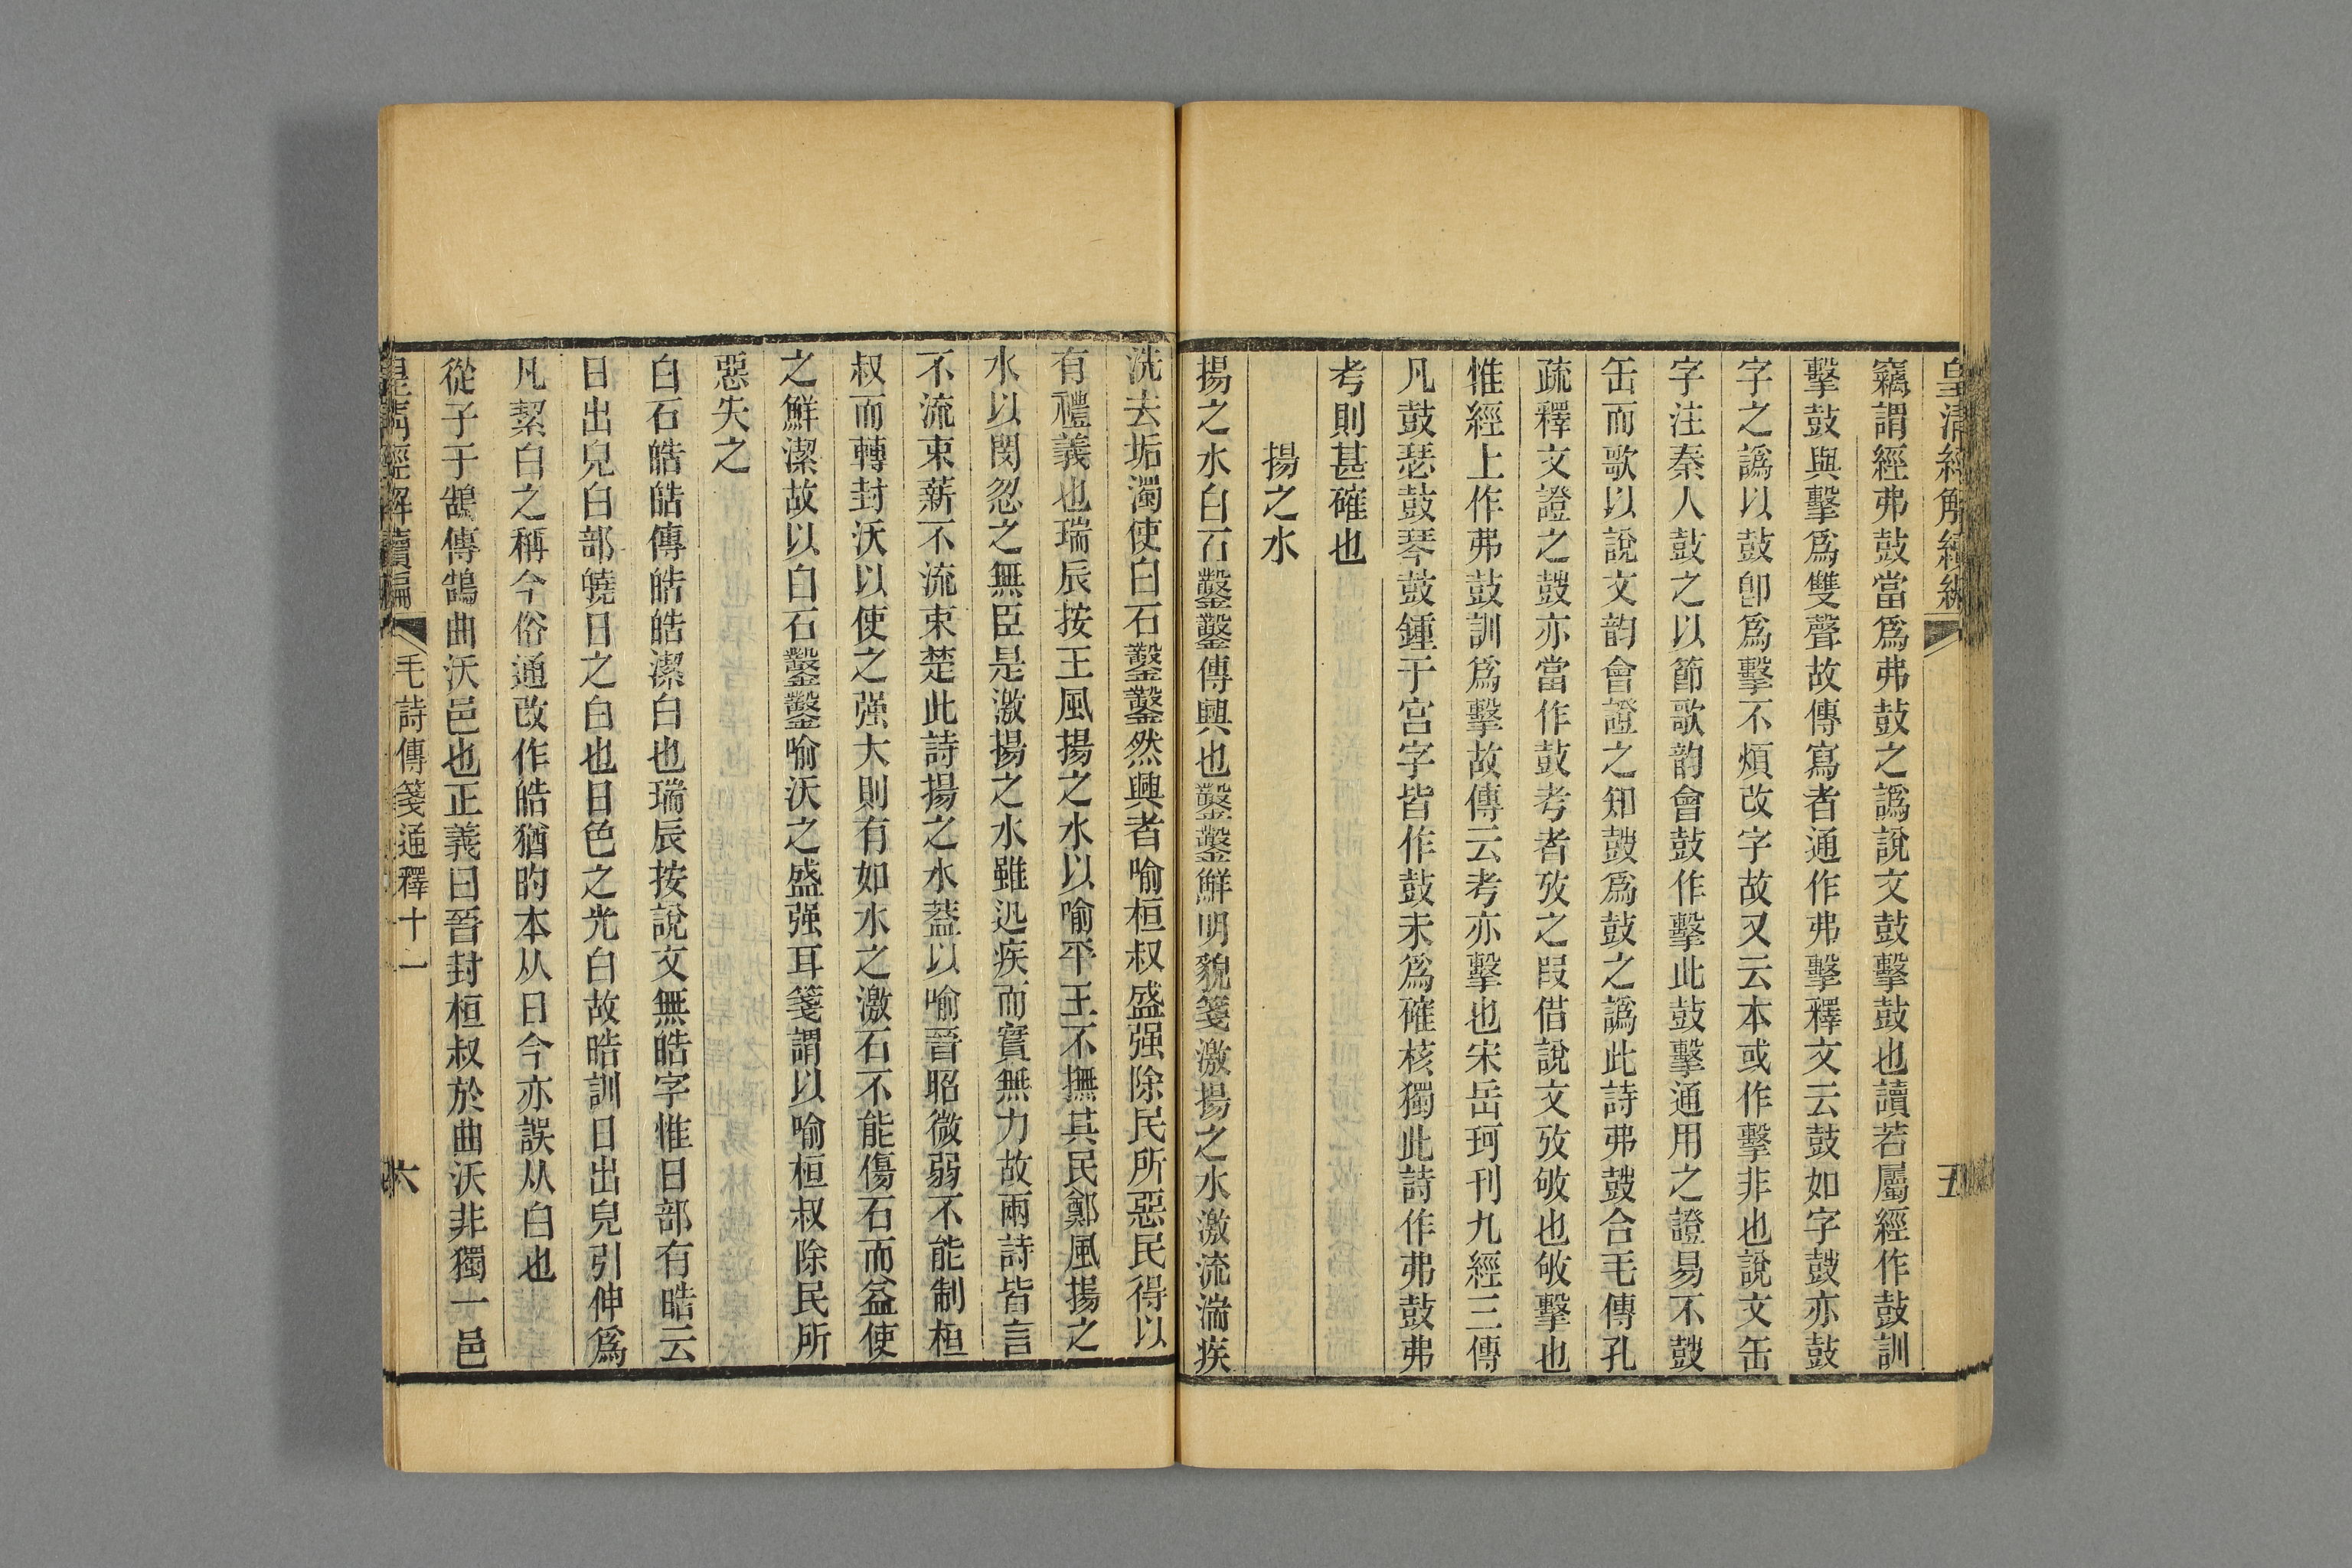 皇清經解續編
五
竊謂經弗鼓當爲弗鼔之譌說文鼔擊鼓也讀若屬經作鼔訓
擊鼓與擊爲雙聲故傳寫者通作弗擊釋文云鼓如字鼓亦鼓
字之譌以鼓卽爲擊不煩改字故又云本或作擊非也說文缶
字注秦人鼓之以節歌韵會鼓作擊此鼓擊通用之證易不鼓
缶而歌以說文韵會證之知鼓爲鼓之譌此詩弗鼓合毛傳孔
疏釋文證之鼓亦當作鼓考者攷之叚借說文攷敂也敂擊也
惟經上作弗鼓訓爲擊故傳云考亦擊也宋岳珂刊九經三傳
凡鼓瑟鼓琴鼓鍾于宮字皆作鼓未爲確核獨此詩作弗鼓弗
考則甚確也
揚之水
揚之水白石鑿鑿傳興也鑿鑿鮮明貌箋激揚之水激流湍疾
洗去垢濁使白石鑿鑿然興者喻桓叔盛强除民所惡民得以
有禮義也瑞辰按王風揚之水以喻平王不撫其民鄭風揚之
水以閔忽之無臣是激揚之水雖迅疾而實無力故兩詩皆言
不流束薪不流束楚此詩揚之水葢以喻晉昭微弱不能制桓
叔而轉封沃以使之强大則有如水之激石不能傷石而益使
之鮮潔故以白石鑿鑿喻沃之盛强耳箋謂以喻桓叔除民所
惡失之
白石皓皓傳皓皓潔白也瑞辰按說文無皓字惟日部有晧云
日出皃白部曉日之白也日色之光白故晧訓日出皃引伸爲
凡絜白之稱今俗通改作皓猶旳本从日今亦誤从白也
從子于鵠傳鵠曲沃邑也正義曰晉封桓叔於曲沃非獨一邑
皇清經解續編
毛詩傳箋通釋十一
六